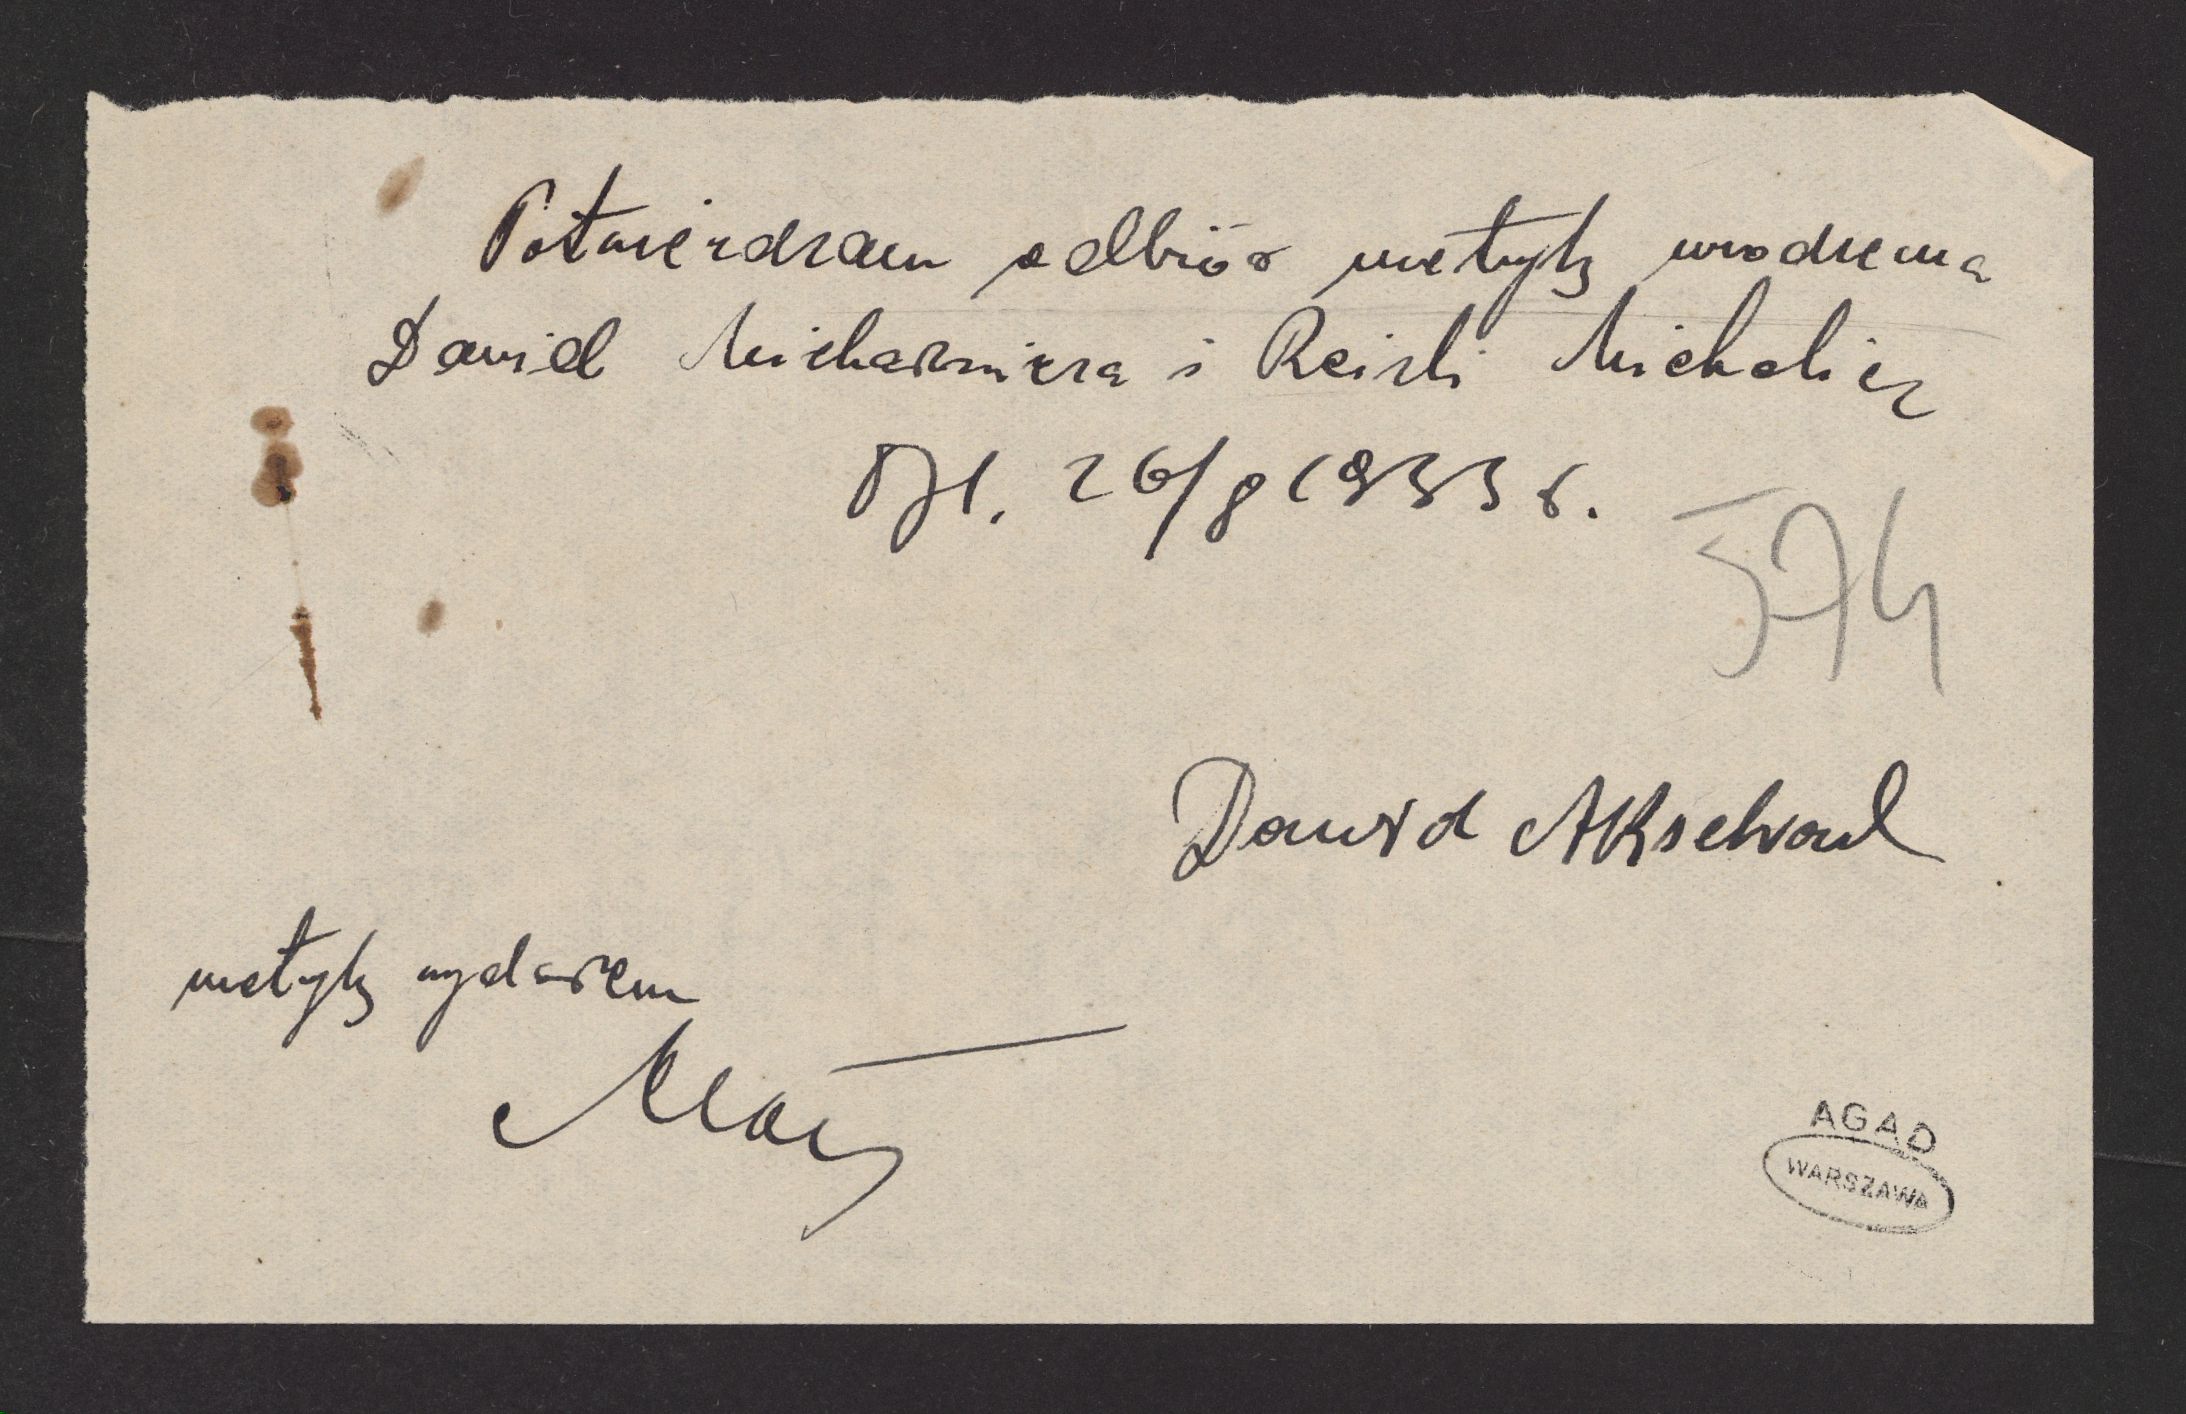 Potwierdzam odbiór metryk urodzenia
Dawid Michałowicza i Reizli Michalicz
26/8 1933 r.
574
Dawid Akselrad
metryk wydałem
AGAD
WARSZAWA